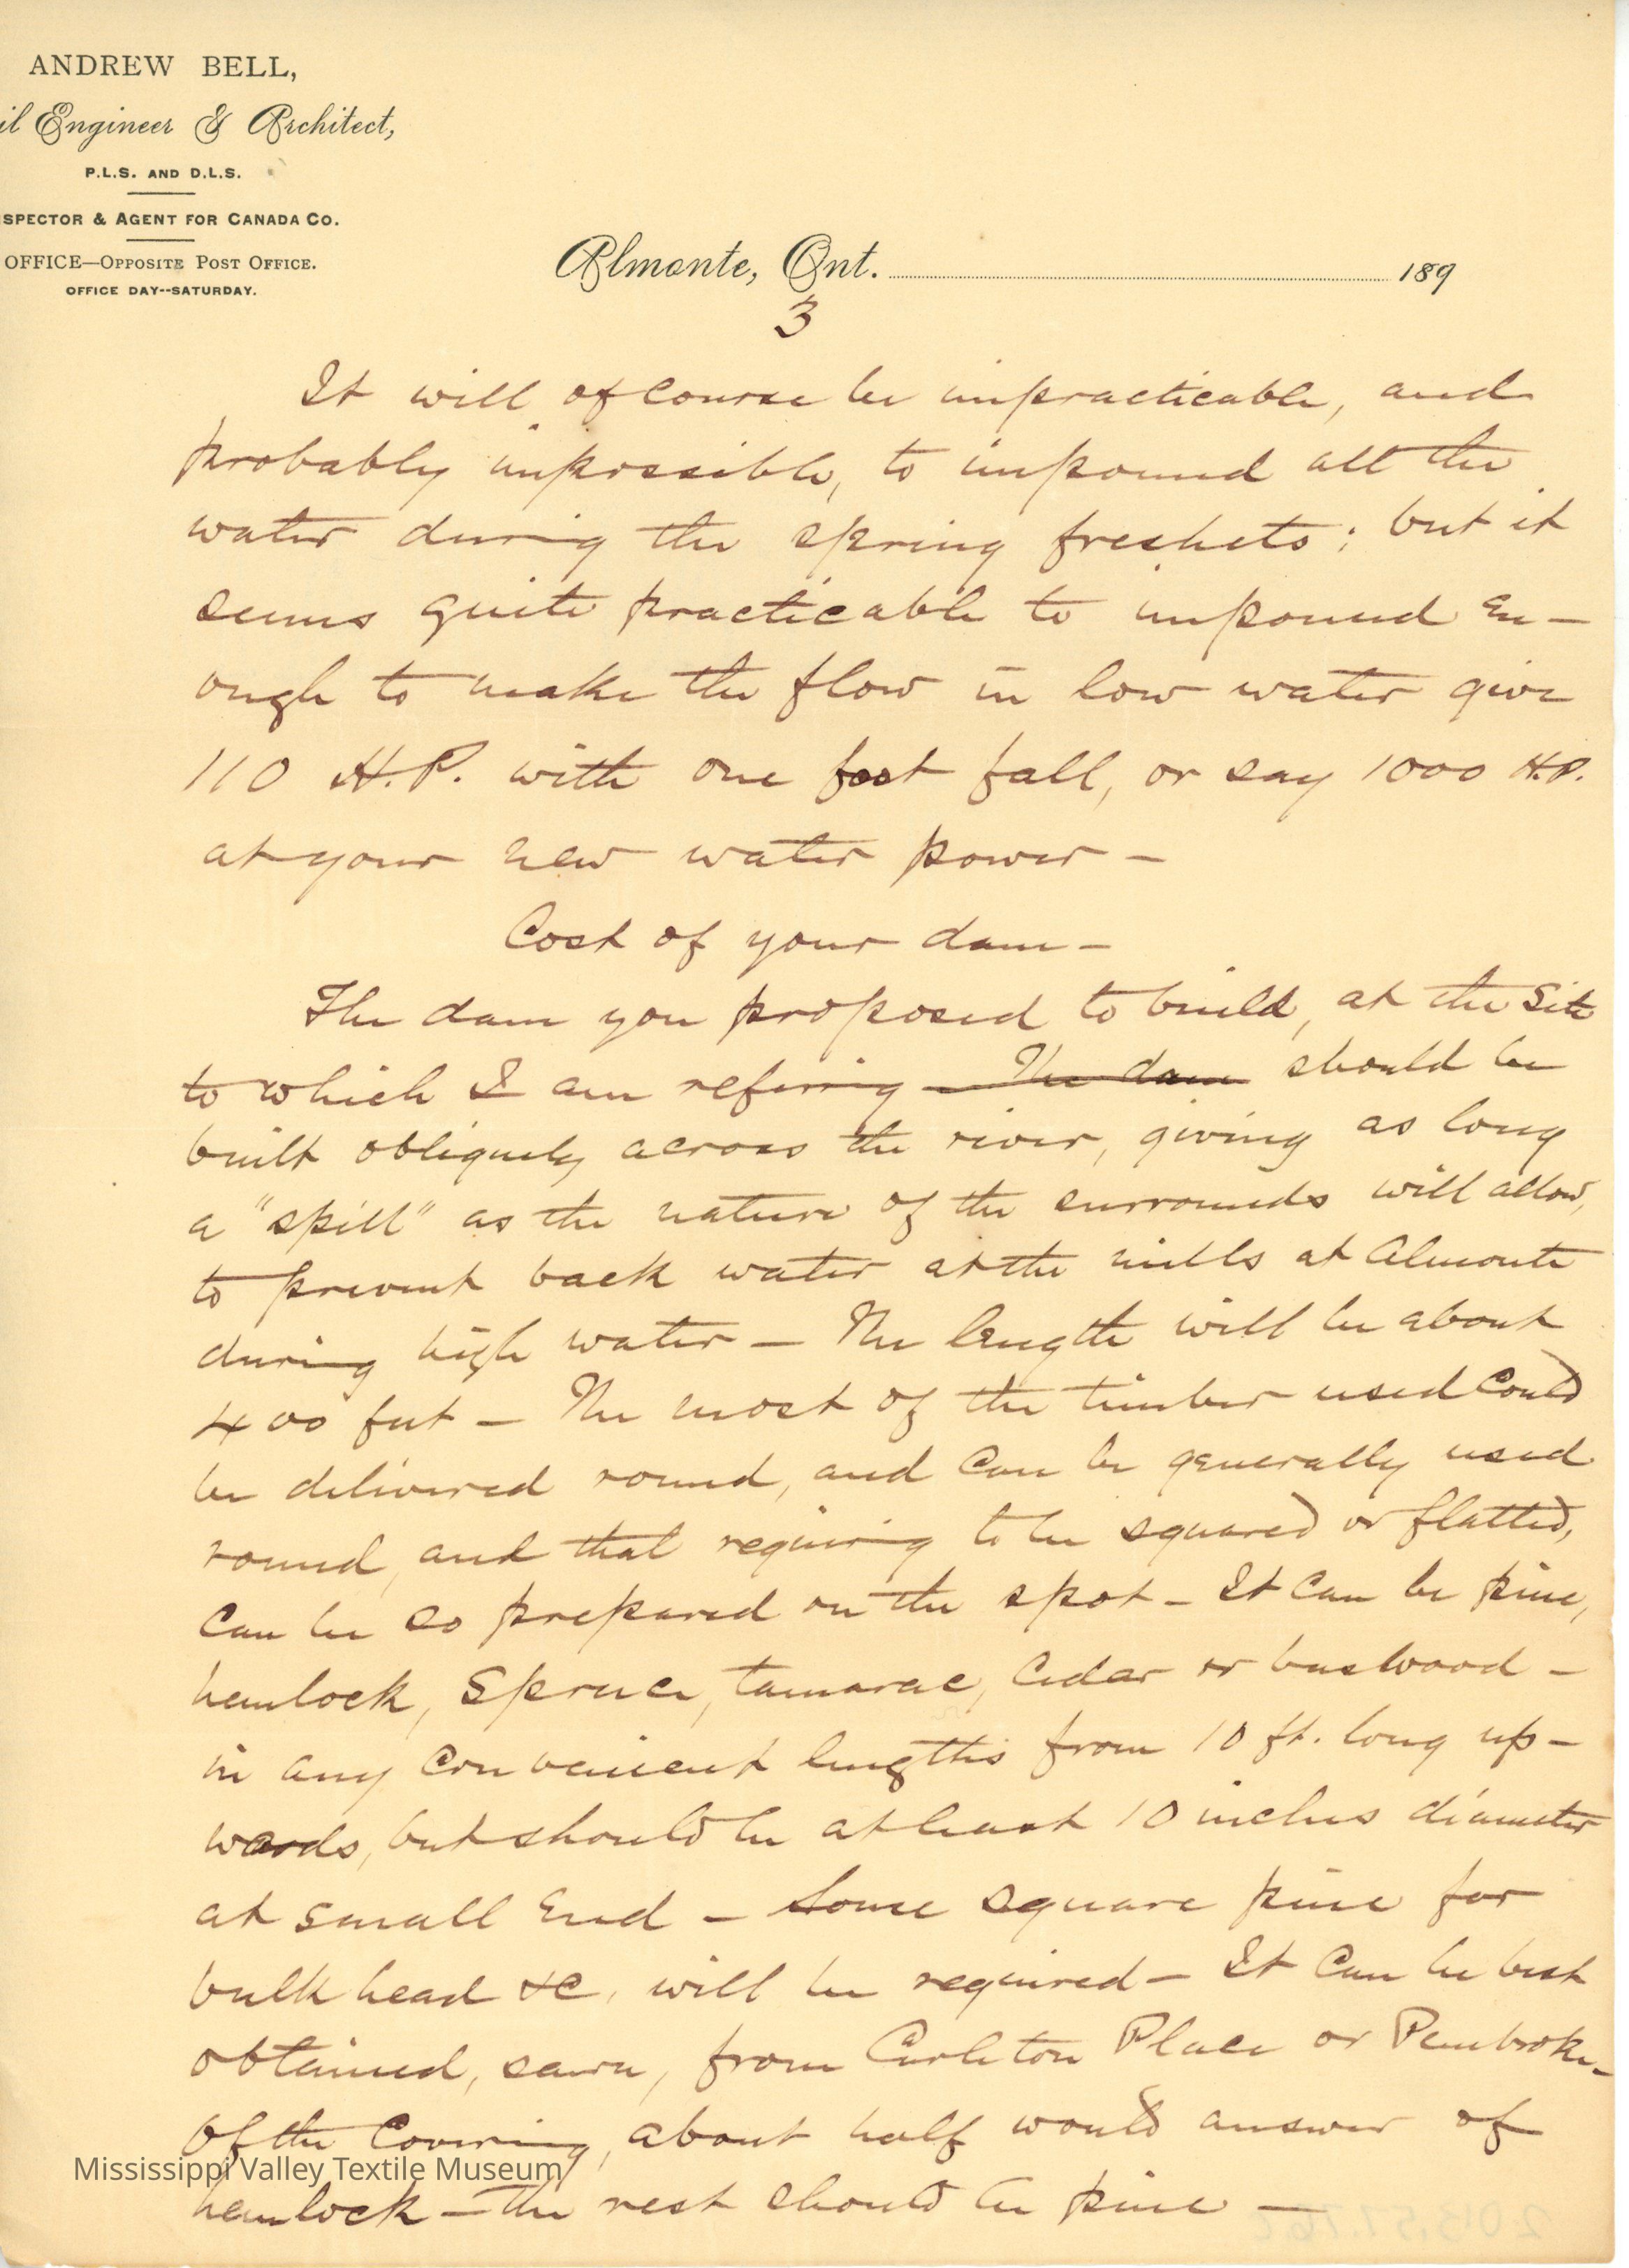 ANDREW BELL,
il Engineer & Architect,
P.L.S. AND D.L.S.
SPECTOR & AGENT FOR CANADA CO.
OFFICE—OPPOSITE POST OFFICE.
OFFICE DAY--SATURDAY.
Almonte, Ont. 189
3
It will of course be impracticable, and
probably impossible, to impound all the
water during the spring freshets; but it
seems quite practicable to impound en-
ough to make the flow in low water give
110 H.P. with one foot fall, or say 1000 H.P.
at your new water power -
Cost of your dam -
The dam you proposed to build, at the site
to which I am refering - The dam should be
built obliquely across the river, giving as long
a "spill" as the nature of the surrounds will allow,
to prevent back water at the mills at Almonte
during high water - The length will be about
400 feet - The most of the timber used could
be delivered round, and can be generally used
round, and that requiring to be squared or flatted,
can be so prepared on the spot - It can be pine,
hemlock, spruce, tamarac, cedar or basswood -
in any convenient lengths from 10 ft. long up-
wards, but should be at least 10 inches diameter
at small end - Some square pine for
bulk head &c, will be required - It can be best
obtained, sawn, from Carleton Place or Pembroke -
Of the covering, about half would answer of
hemlock - the rest should be pine -
Mississippi Valley Textile Museum